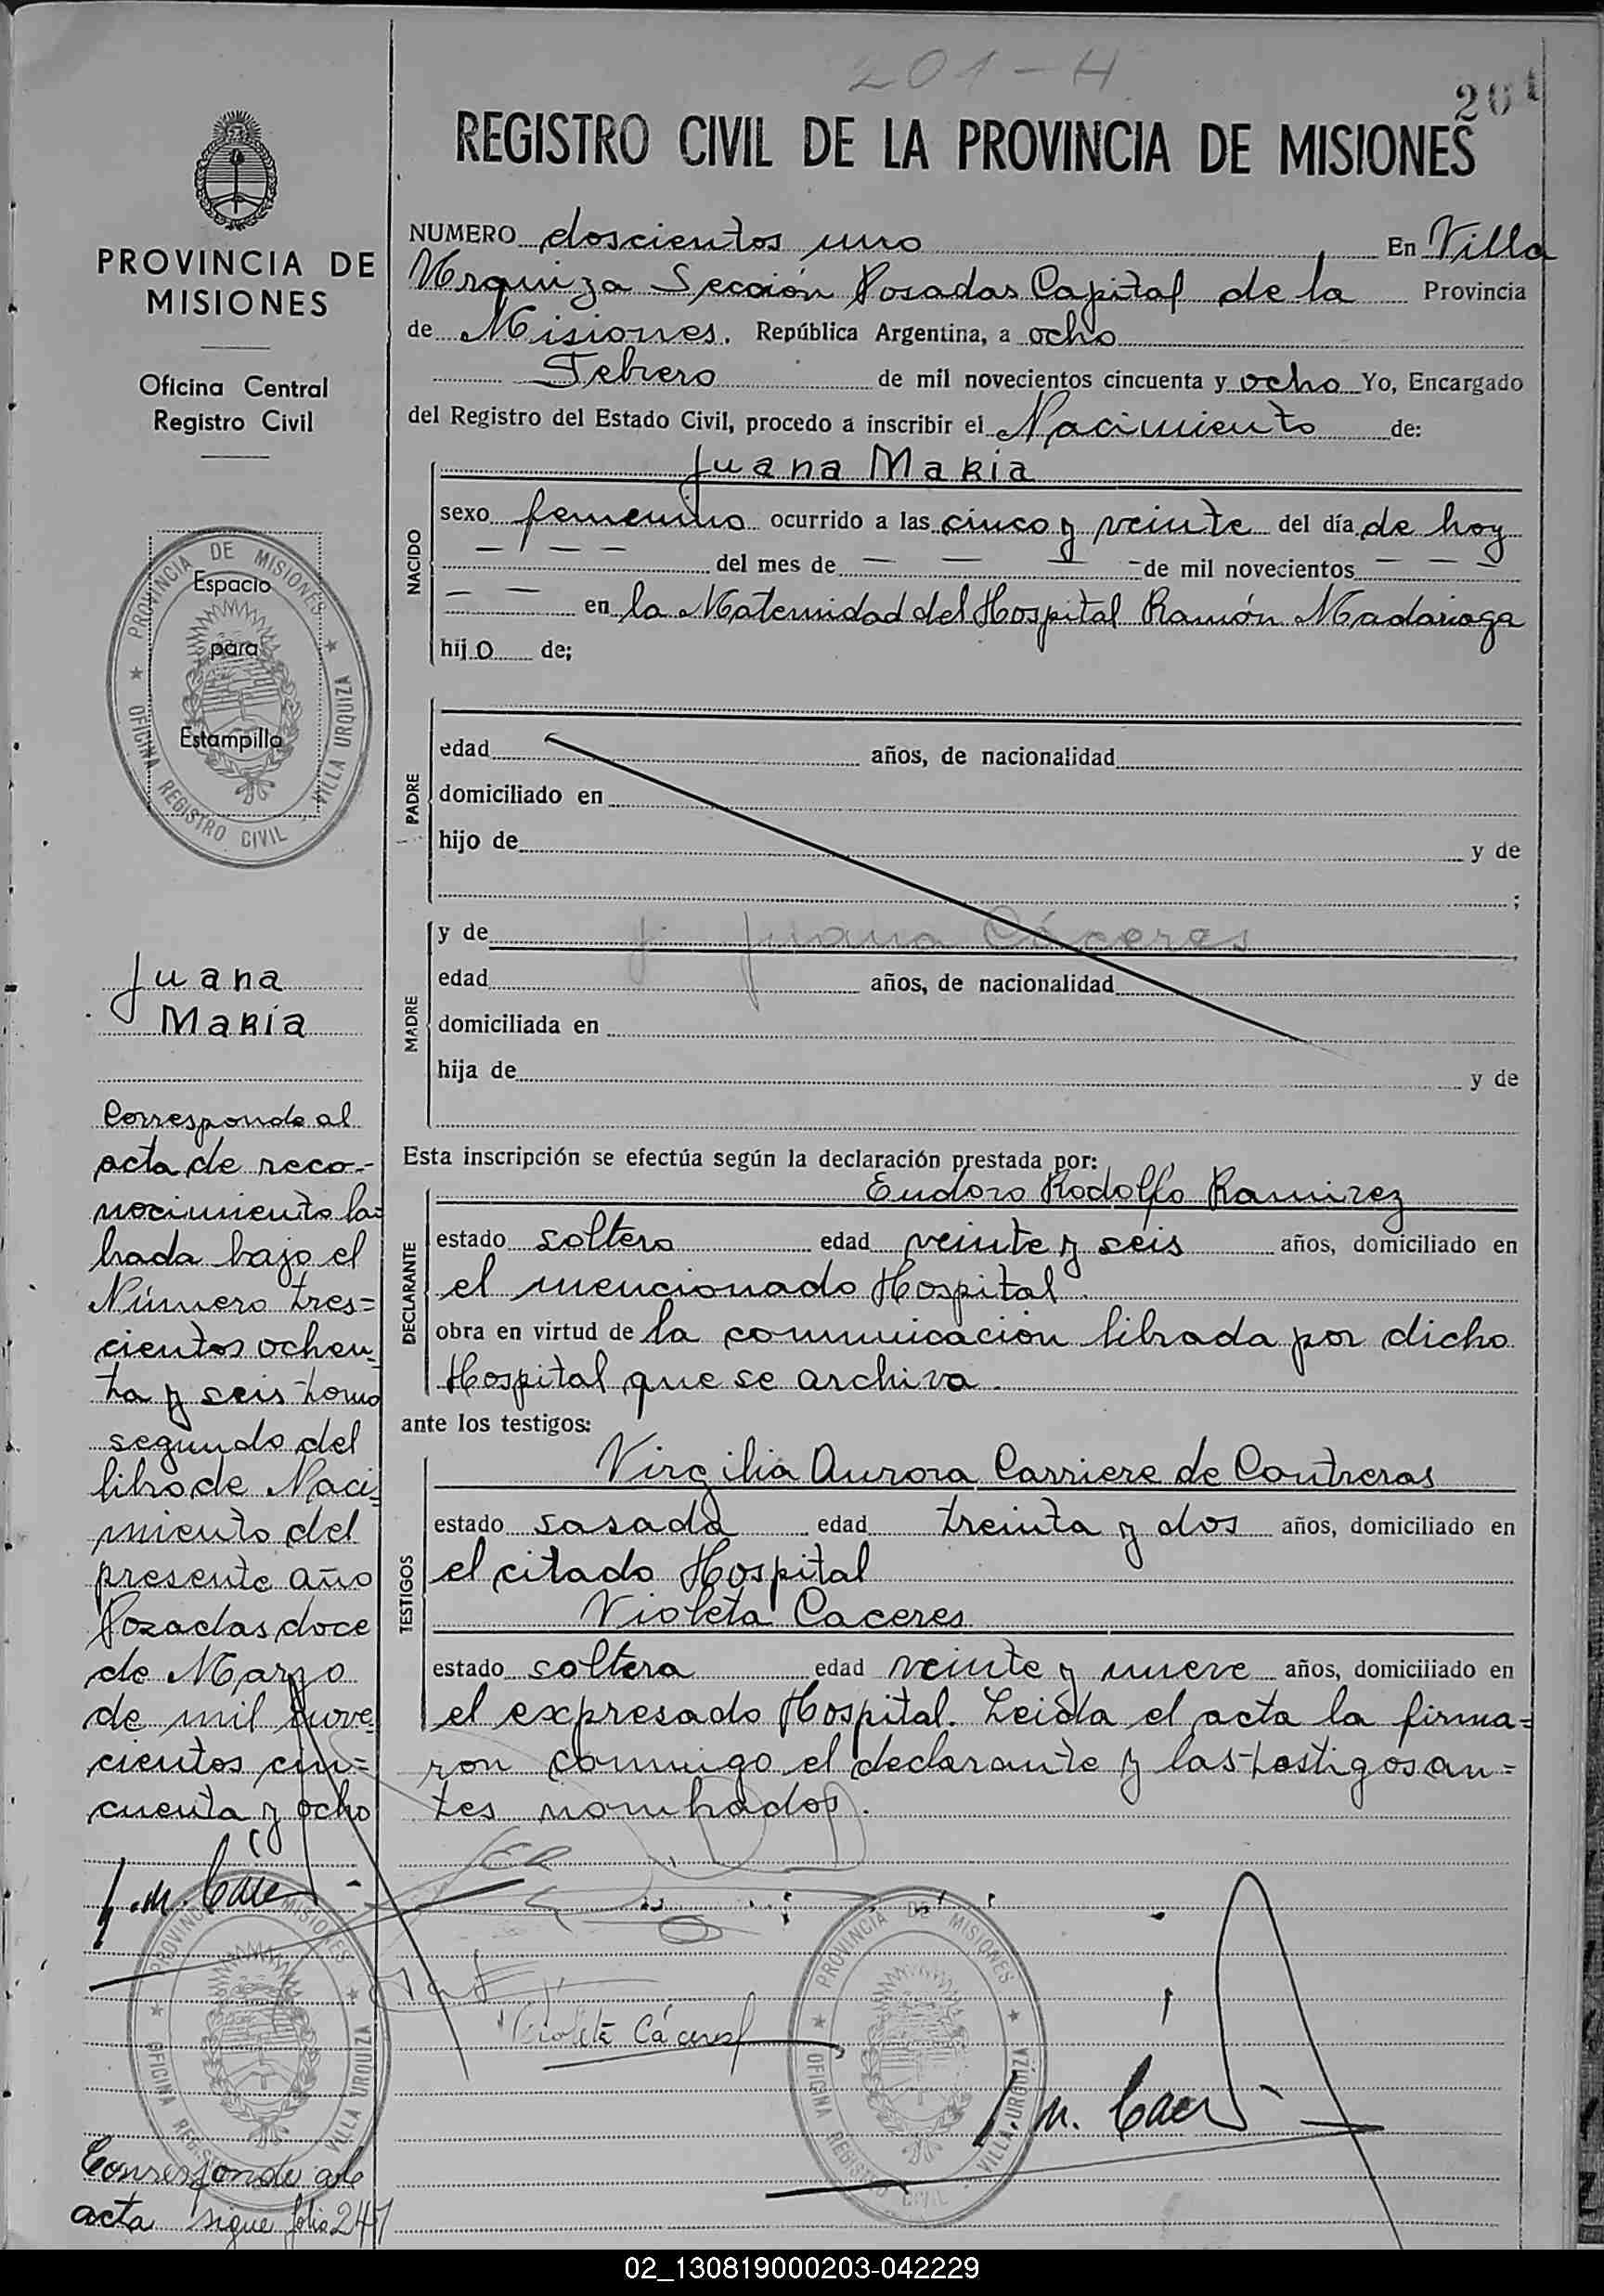 201-H
201
REGISTRO CIVIL DE LA PROVINCIA DE MISIONES
PROVINCIA DE
MISIONES
Oficina Central
Registro Civil
PROVINCIA DE MISIONES
Espacio
para
Estampilla
OFICINA REGISTRO CIVIL VILLA URQUIZA
Juana
Maria
Corresponde al
acta de reco-
nocimiento la=
brada bajo el
Número tres=
cientos ochen_
ta y seis tomo
segundo del
libro de Naci_
miento del
presente año
Pozadas doce
de Marzo
de mil nove_
cientos cin=
cuenta y ocho
PROVINCIA DE MISIONES
OFICINA REGISTRO CIVIL VILLA URQUIZA
Corresponde al
acta sigue folio 247
NUMERO doscientos uno En Villa
Urquiza Sección Posadas Capital de la Provincia
de Misiones. República Argentina, a ocho
Febrero de mil novecientos cincuenta y ocho Yo, Encargado
del Registro del Estado Civil, procedo a inscribir el Nacimiento de:
Juana Maria
NACIDO
sexo femenino ocurrido a las cinco y veinte del día de hoy
- - - - del mes de - - - - de mil novecientos - - -
- - en la Maternidad del Hospital Ramón Madariaga
hijo de;
PADRE
edad años, de nacionalidad
domiciliado en
hijo de y de
;
MADRE
y de Juana Cáceres
edad años, de nacionalidad
domiciliada en
hija de y de
Esta inscripción se efectúa según la declaración prestada por:
DECLARANTE
Eudoro Rodolfo Ramirez
estado soltero edad veinte y seis años, domiciliado en
el mencionado Hospital.
obra en virtud de la comunicación librada por dicho
Hospital que se archiva.
ante los testigos:
TESTIGOS
Virgilia Aurora Carriere de Contreras
estado sasada edad treinta y dos años, domiciliado en
el citado Hospital
Violeta Caceres
estado soltera edad veinte y nueve años, domiciliado en
el expresado Hospital. Leida el acta la firma=
ron conmigo el declarante y las testigos an=
tes nombrados.
Violeta Cáceres
PROVINCIA DE MISIONES
OFICINA REGISTRO CIVIL VILLA URQUIZA
02_130819000203-042229